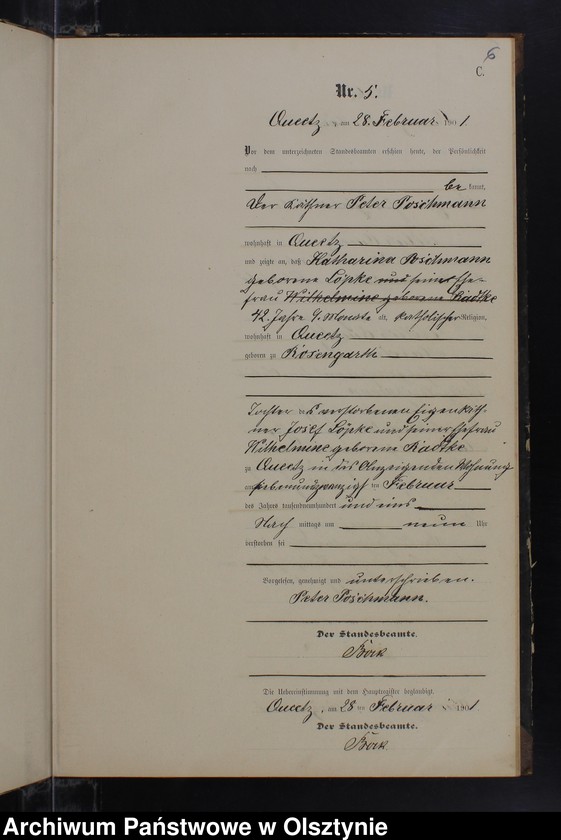 6
C.
Nr. 5.
Queetz, am 28. Februar 1901
Vor dem unterzeichneten Standesbeamten erschien heute, der Persönlichkeit
nach
be kannt,
Der Käthner Peter Poschmann
wohnhaft in Queetz
und zeigte an, daß Katharina Poschmann
geborene Löpke und seiner Ehe-
frau Wilhelmine geborene Radtke
42 Jahre 4 Monate alt, katholischer Religion,
wohnhaft in Queetz
geboren zu Rosengarth
Tochter des verstorbenen Eigenkäth-
ner Josef Löpke und seiner Ehefrau
Wilhelmine geborene Radtke
zu Queetz in des Anzeigenden Wohnung
am siebenundzwanzigsten Februar
des Jahres tausendneunhundert und eins
Nach mittags um neun Uhr
verstorben sei
Vorgelesen, genehmigt und unterschrieben.
Peter Poschmann.
Der Standesbeamte.
Böck
Die Uebereinstimmung mit dem Hauptregister beglaubigt.
Queetz, am 28 ten Februar 1901
Der Standesbeamte.
Böck
Archiwum Państwowe w Olsztynie